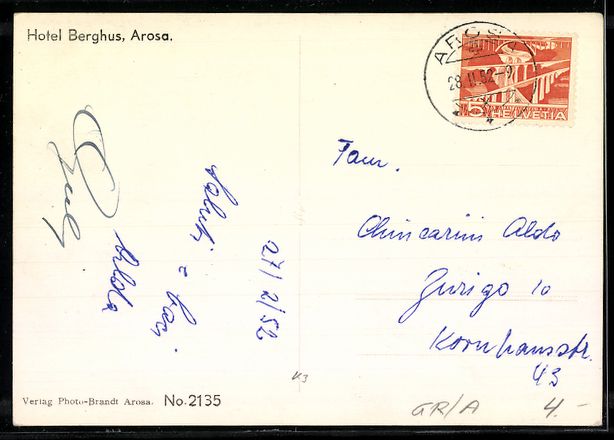 Hotel Berghus, Arosa.
AROSA
28.II.52-9
5
HELVETIA
27/2/52
Saluti
e baci
Alda
Fam.
Chincarini Aldo
Zurigo 10
Kornhausstr.
43
K3
Verlag Photo-Brandt Arosa. No. 2135
GR/A
4.-